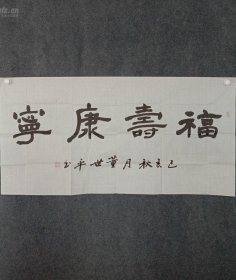 福壽康寧
己亥秋月董世平书